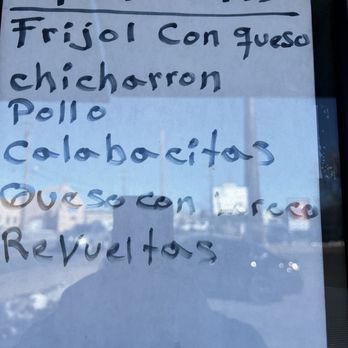 Frijol Con queso
chicharron
Pollo
Calabacitas
Queso con Loroco
Revueltas